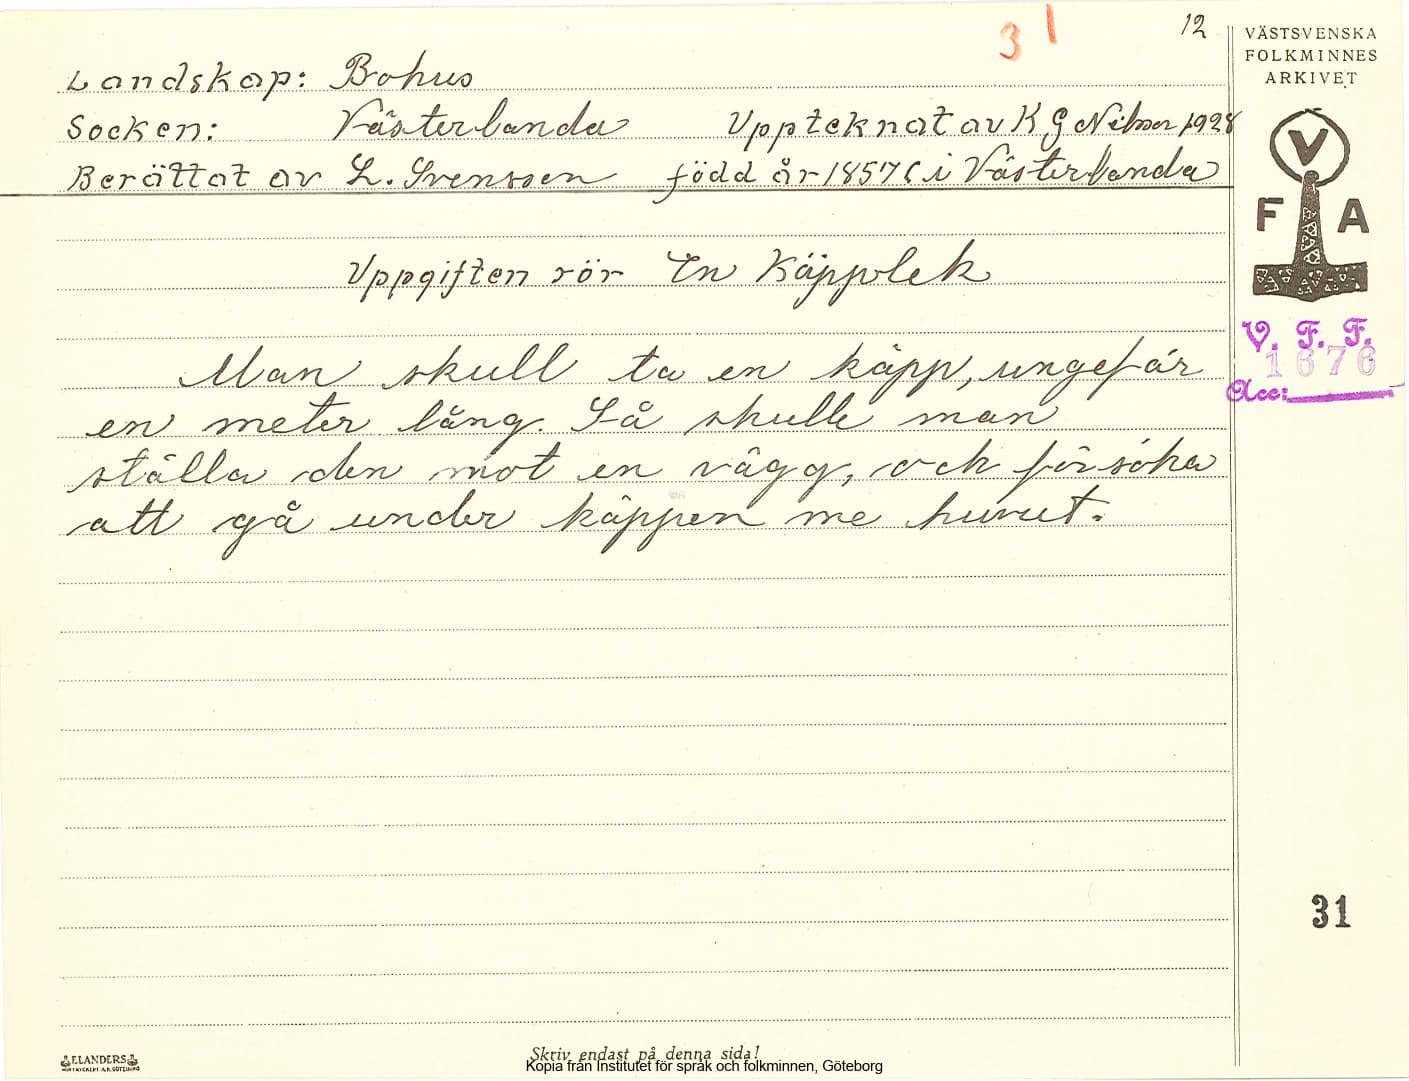 31
12
Landskap: Bohus
Socken: Västerlanda Uppteknat av K G Nilsson 1928
Berättat av L. Svensson född år 1857 i Västerlanda
Uppgiften rör En Käpplek
Man skull ta en käpp, ungefär
en meter lång. Så skulle man
ställa den mot en vägg, och försöka
att gå under käppen me huvut.
VÄSTSVENSKA
FOLKMINNES
ARKIVET
V
F A
V. F. F.
1676
Acc:
31
ELANDERS
Skriv endast på denna sida!
Kopia från Institutet för språk och folkminnen, Göteborg